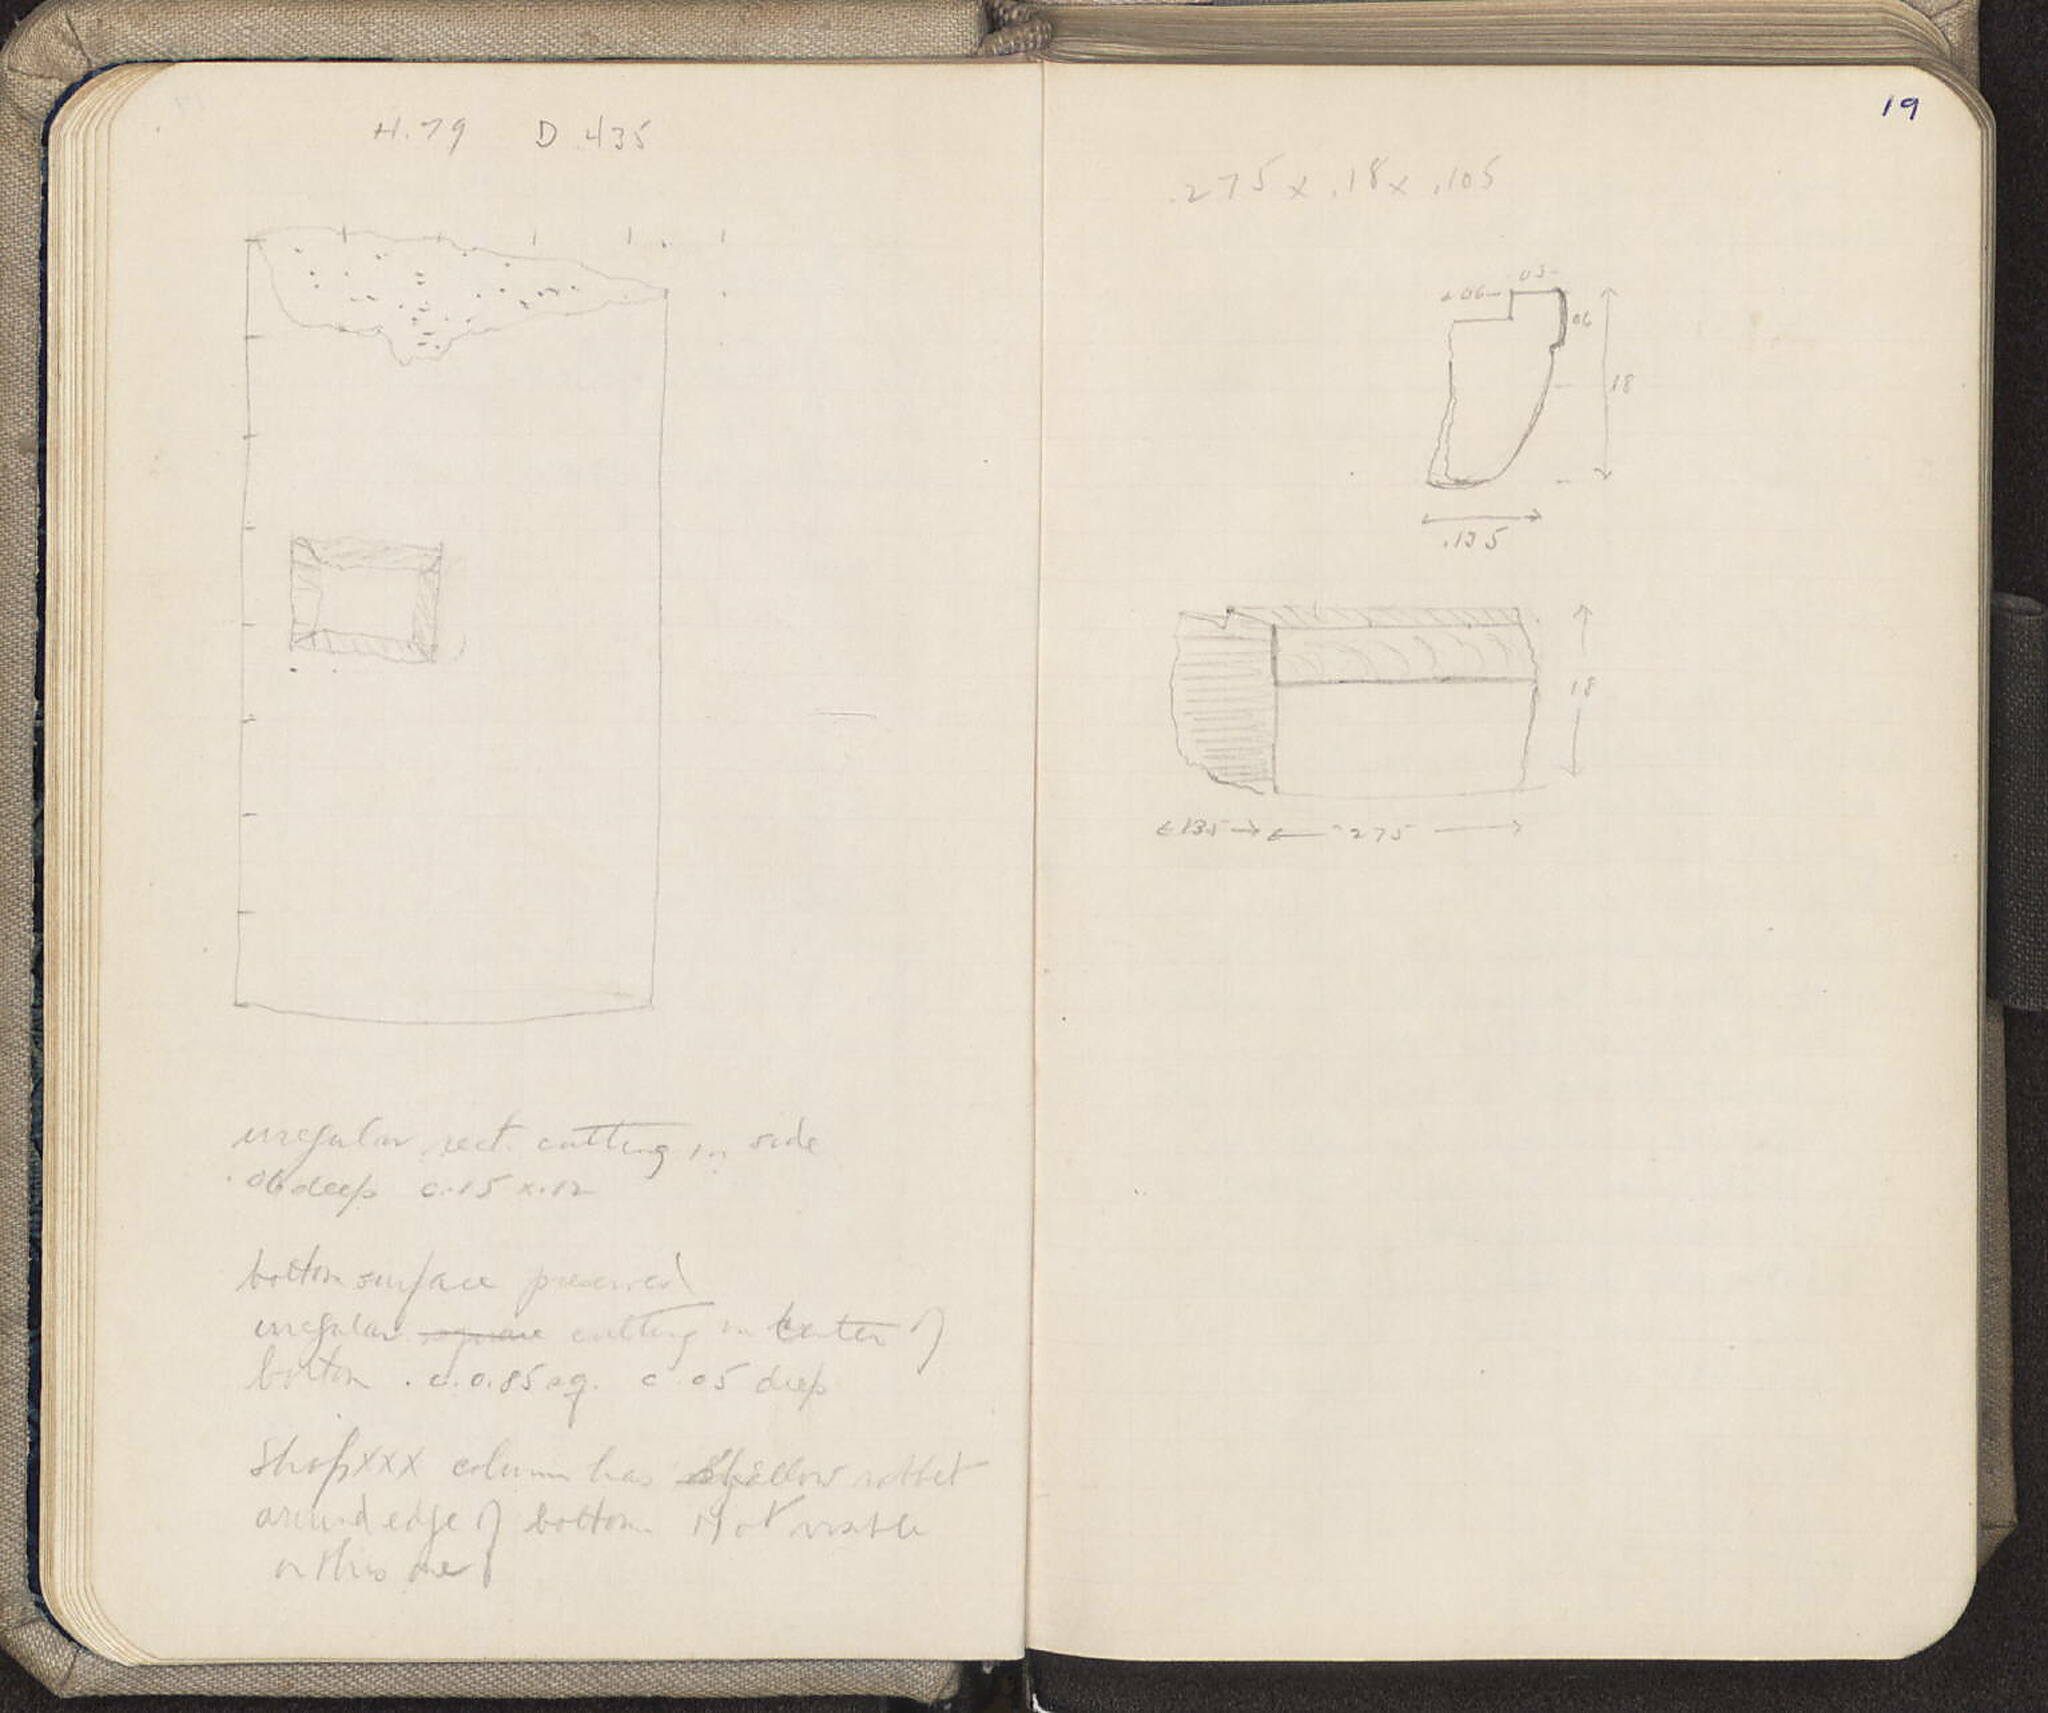 H .79 D .435
irregular rect. cutting in side
.06 deep c .15 x .12
bottom surface preserved
irregular square cutting in center of
bottom . c. 0.85 sq. c .05 deep
Shop XXX column has shallow rabbet
around edge of bottom. Not visible
on this one
19
.275 x .18 x .105
.03
.06
06
18
.135
18
.135
.275